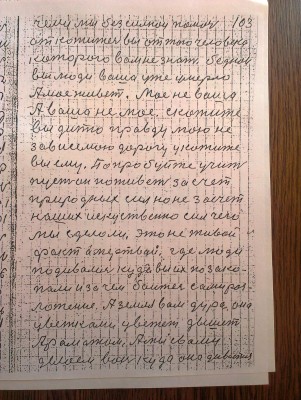 чем мы без силной помочи 103
от скотижеч вы от того человека
которого вам не знать бедной
вы люди ваша уже умерло
А мое живет. Мое не ваша
А ваша не мое, скотиже
вы дитю правду мою не
зависемою дорогу укотиже
вы ему. Попробуйте учит
пуст он поживет за счет
природных сил но не за счет
наших искуственно сил чего
мы сделали, это не живой
факт а жертвай, где люди
подивалис куда вы их позако-
пали и за чем боитес самираз-
ложение. А земля вам дура, она
цветками цветет дышит
Араматом, А живому
делаем вон куда она дивается